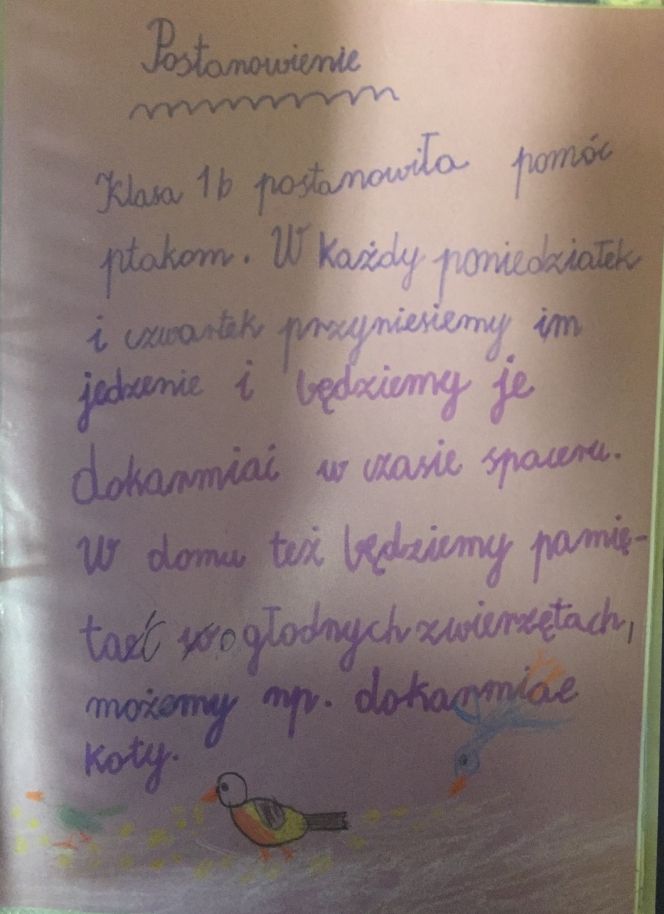 Postanowienie
Klasa 1b postanowiła pomóc
ptakom. W każdy poniedziałek
i czwartek przyniesiemy im
jedzenie i będziemy je
dokarmiać w czasie spaceru.
W domu też będziemy pamię-
tać o głodnych zwierzętach,
możemy np. dokarmiac
koty.